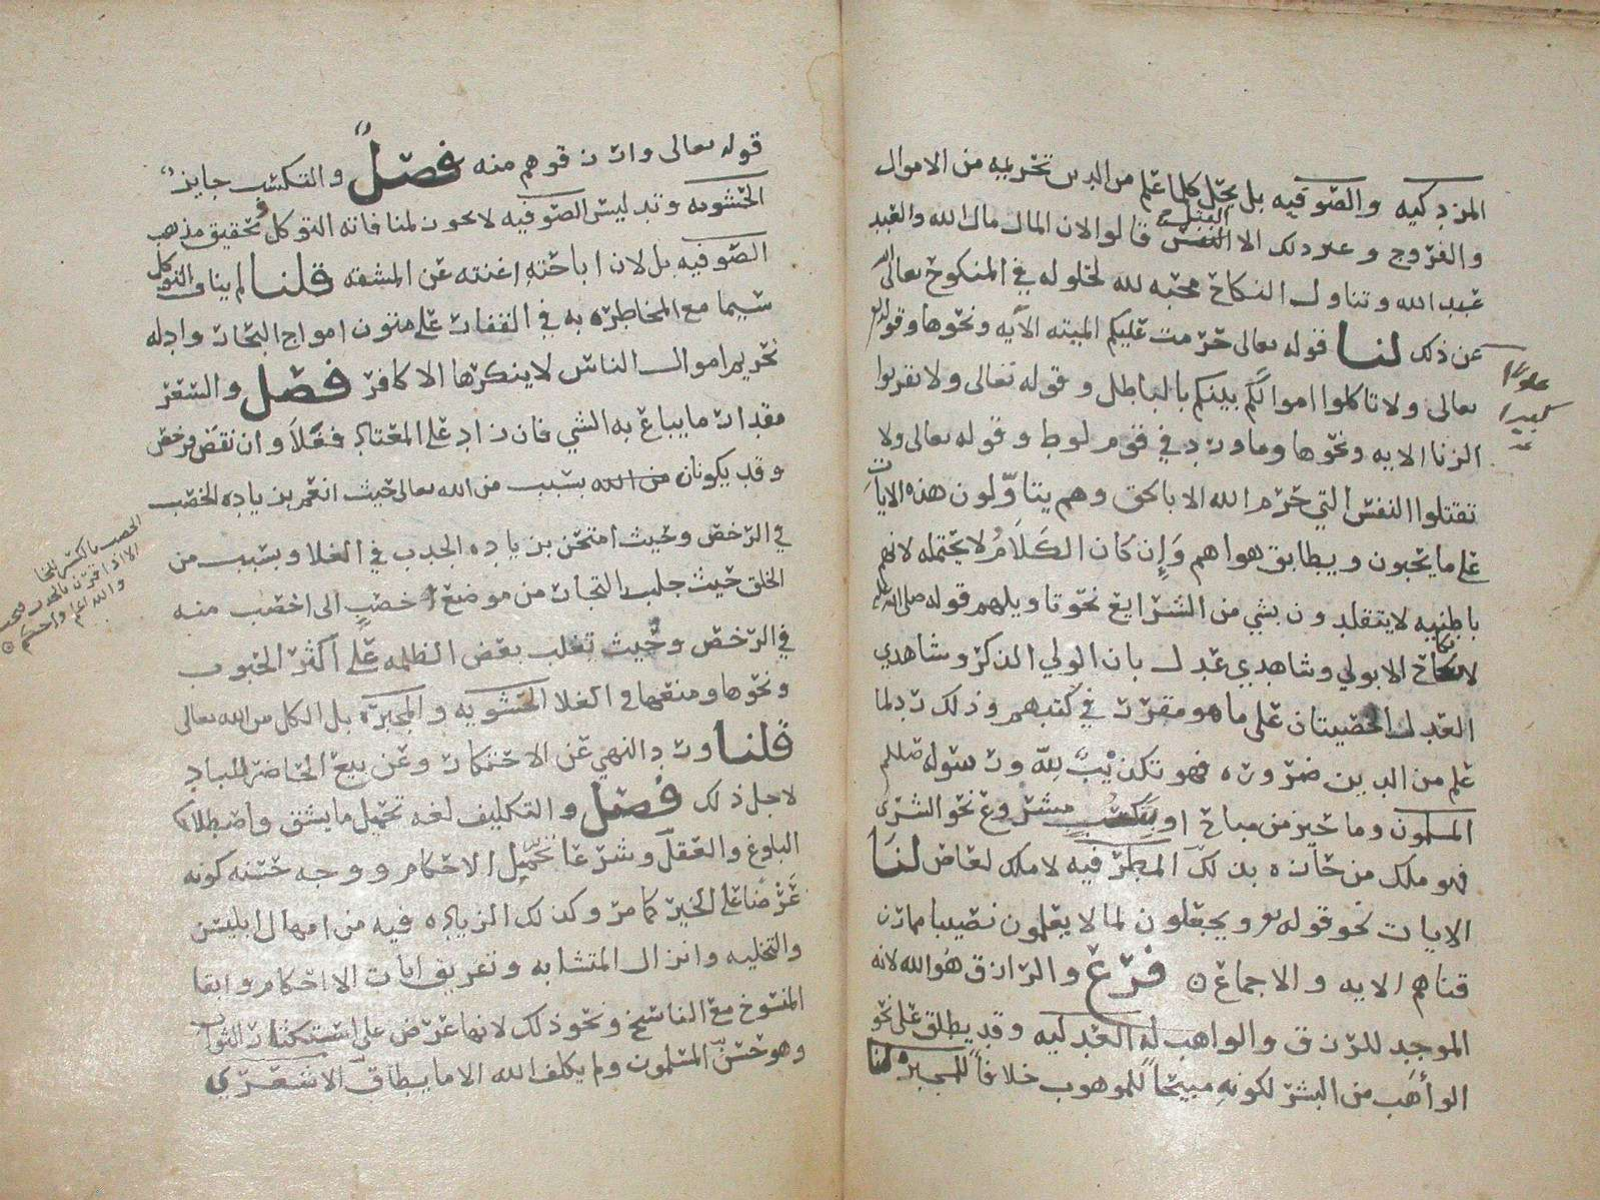 المزدكيه والصوفيه بل يحل كلما علم من الدين تحريمه من الاموال
والفروج وغير ذلك الا القتل النفس قالوا لان المال مال الله والعبد
عبد الله وتناول النكاح محبه لله لحلوله في المنكوح تعالى الله
عن ذلك لنا قوله تعالى حرمت عليكم الميته الآيه ونحوها وقوله
علوا كبيرا
تعالى ولا تاكلوا اموالكم بينكم بالباطل وقوله تعالى ولا تقربوا
الزنا الايه ونحوها وما ورد في قوم لوط وقوله تعالى ولا
تقتلوا النفس التي حرم الله الا بالحق وهم يتاوّلون هذه الايات
على ما يحبون ويطابق هواهم وَإِن كان الكَلَامُ لا يحتمله لانهم
باطنيه لا يتقلدون بشي من الشرايع نحو تاويلهم قوله صلى الله عليه
لا نكاح الا بولي وشاهدي عدل بان الولي الذكر وشاهدي
العدل الخصيتان على ما هو مقرر في كتبهم وذلك رد لما
علم من الدين ضروره فهو تكذيبٌ للّه ورسوله صللم
المسلمون وما حيز من مباح او بتكسبٍ مشروع نحو الشرى
فهو ملك من حازه بذلك المطرفيه لا ملك لعاص لنَا
الايات نحو قوله تع ويجعلون لما لا يعلمون نصيبا مما رز
قناهم الايه والاجماع فرع والرازق هُو الله لانه
الموجد للرزق والواهب له العدليه وقد يطلق على نحو
الوأهَب من البشر لكونهِ مبيحاً للموهوب خلافاً للمجبره لنا
قوله تعالى وارزقوهم منه فصلٌ والتكسّب جايز
الحشويه وتدليس الصوفيه لا يجوز لمنافاته التوكل وتحقيق مذهب
الصوفيه بل لان اباحتهِ اغنته عن المشقه قلنا لم يناف التوكل
سيما مع المخاطره به في القفار على متون امواج البحار وادله
تحريم اموال الناس لا ينكرها الا كافر فصل والسعر
مقدار ما يباع به الشي فان زاد على المعتاد فغلَا وان نقص فرخص
وقد يكونان من الله بسبب من الله تعالى حيث انعم بزيادهِ الخصب
في الرخص وحيث امتحن بزياده الجدب في الغلا وبسبب من
الخصب بالكسر للخا
والله اعلم واحكم
الخلق حيث جلب التجار من موضع خصبٍ الى اخصب منه
في الرخص وحيث تغلب بعض الظلمه على اكثر الحبوب
ونحوها ومنعها في الغلا الحشويه والمجبره بل الكل من الله تعالى
قلنا ورد النهي عن الاحتكار وعن بيع الحاضر للباد
لاجل ذلك فصل والتكليف لغه تحميل ما يشق واصطلاحا
البلوغ والعقل وشرعا تحمّيل الاحكام ووجه حسنه كونه
عَرْضًا على الخير كما مر وكذلك الزياده فيه من امهال ابليس
والتخليه وانزال المتشابه وتفريق ايات الاحكام وابقا
المنسوخ مع الناسخ ونحو ذلك لانها عرض على استكثار الثواب
وهو حَسَنٌ المسلمون ولم يكلف الله الا ما يطاق الاشعري